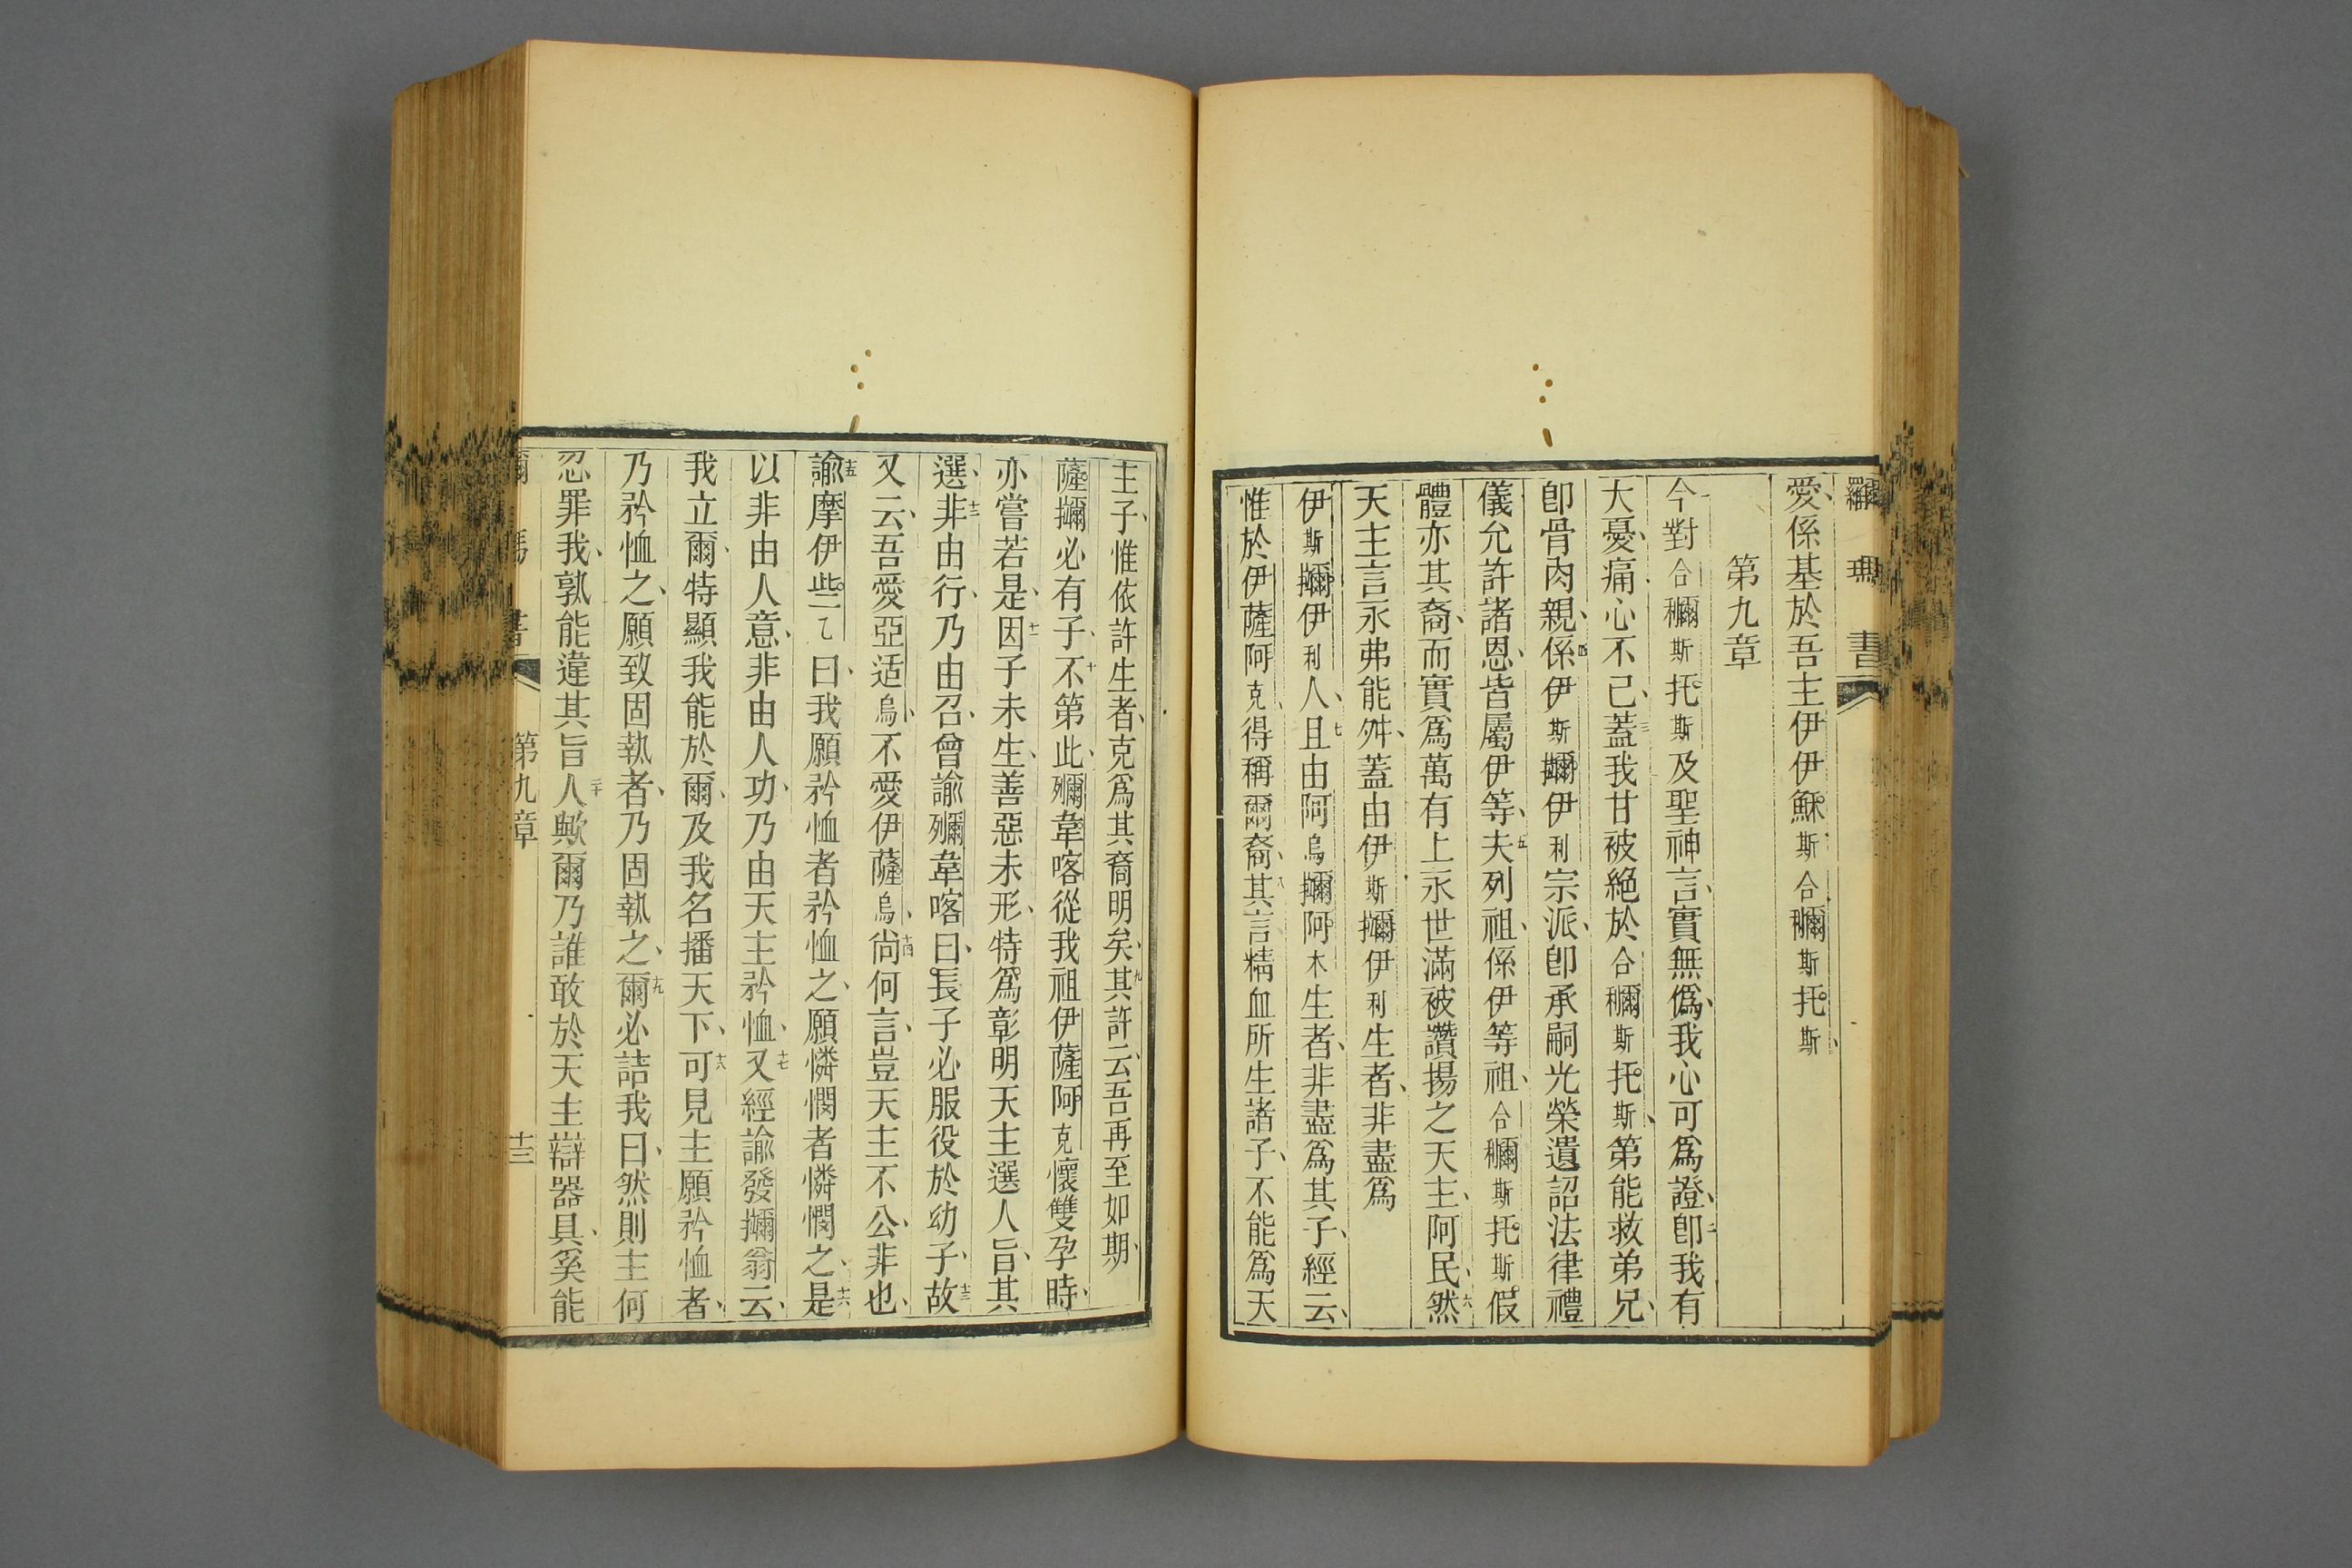 愛、係基於吾主伊伊穌斯合𥠖斯托斯、
第九章
今對合𥠖斯托斯及聖神言、實無僞、我心可爲證、二卽我有
大憂、痛心不已、三蓋我甘被絕於合𥠖斯托斯、第能救弟兄、
卽骨肉親、四係伊斯𢺞伊利宗派、卽承嗣光榮遺詔法律禮
儀允許諸恩、皆屬伊等、五夫列祖、係伊等祖、合𥠖斯托斯假
體亦其裔、而實爲萬有上永世滿被讚揚之天主、阿民、六然
天主言永弗能舛、蓋由伊斯𢺞伊利生者、非盡爲
伊斯𢺞伊利人、七且由阿烏𢺞阿木生者、非盡爲其子、經云、
惟於伊薩阿克、得稱爾裔、八其言精血所生諸子、不能爲天
主子、惟依許生者、克爲其裔明矣、九其許云、吾再至如期、
薩𢺞必有子、十不第此、𭮿韋喀從我祖伊薩阿克懷雙孕時、
亦嘗若是、十一因子未生、善惡未形、特爲彰明天主選人旨、其
選、十二非由行、乃由召、曾諭𭮿韋喀曰、長子必服役於幼子、十三故
又云、吾愛亞适烏、不愛伊薩烏、十四尚何言、豈天主不公、非也、
十五諭摩伊些乙曰、我願矜恤者矜恤之、願憐憫者憐憫之、十六是
以非由人意、非由人功、乃由天主矜恤、十七又經諭發𢺞翁云、
我立爾、特顯我能於爾、及我名播天下、十八可見主願矜恤者、
乃矜恤之、願致固執者、乃固執之、十九爾必詰我曰、然則主何
忍罪我、孰能違其旨、二十人歟爾乃誰敢於天主辯、器具、奚能
第九章
十三